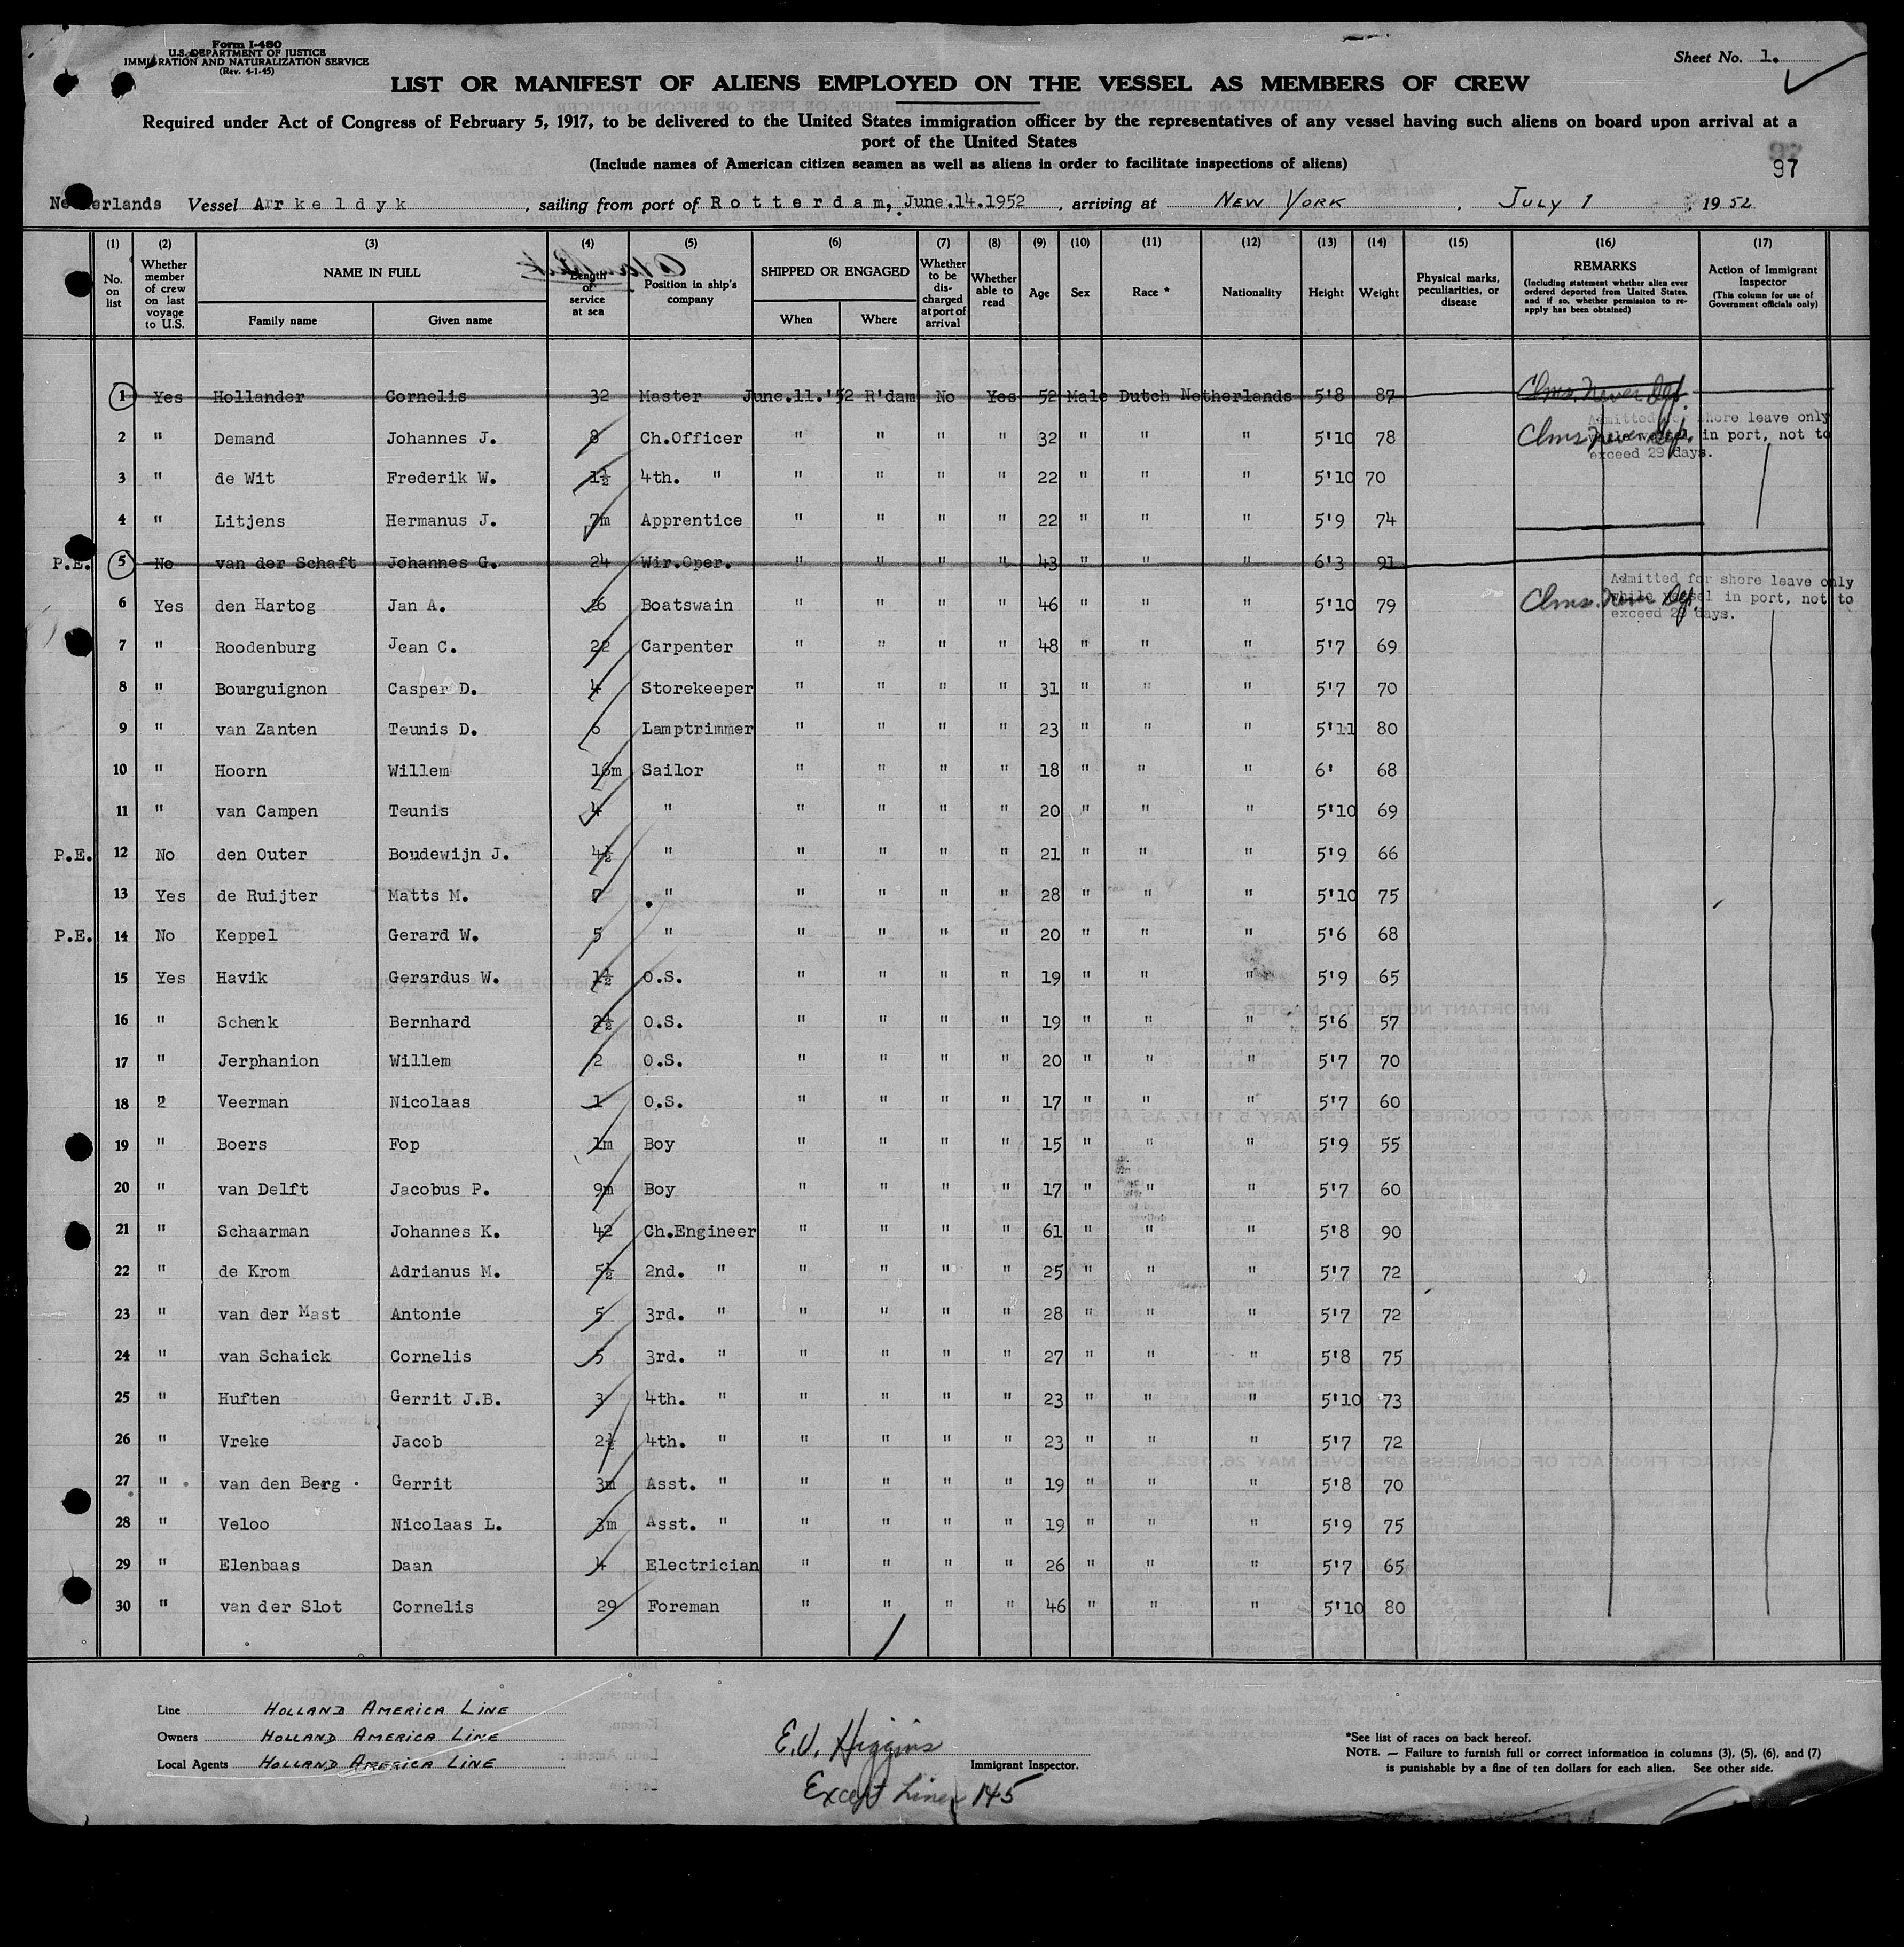 Form I-480
U.S. DEPARTMENT OF JUSTICE
IMMIGRATION AND NATURALIZATION SERVICE
(Rev. 4-1-45)
Sheet No. 1.
LIST OR MANIFEST OF ALIENS EMPLOYED ON THE VESSEL AS MEMBERS OF CREW
Required under Act of Congress of February 5, 1917, to be delivered to the United States immigration officer by the representatives of any vessel having such aliens on board upon arrival at a
port of the United States
(Include names of American citizen seamen as well as aliens in order to facilitate inspections of aliens)
97
Netherlands Vessel Arkeldyk, sailing from port of Rotterdam, June.14.1952, arriving at NEW YORK, JULY 1, 1952
(1) (2) (3) (4) (5) (6) (7) (8) (9) (10) (11) (12) (13) (14) (15) (16) (17)
No. on list | Whether member of crew on last voyage to U.S. | NAME IN FULL | Family name | Given name | Length of service at sea | Position in ship's company | SHIPPED OR ENGAGED | When | Where | Whether to be discharged at port of arrival | Whether able to read | Age | Sex | Race * | Nationality | Height | Weight | Physical marks, peculiarities, or disease | REMARKS (Including statement whether alien ever ordered deported from United States, and if so, whether permission to re-apply has been obtained) | Action of Immigrant Inspector (This column for use of Government officials only)
1 Yes Hollander Cornelis 32 Master June.11.'52 R'dam No Yes 52 Male Dutch Netherlands 5'8 87 Clms. Never Def.
2 " Demand Johannes J. 8 Ch.Officer " " " " 32 " " " 5'10 78 Clms. Never Def. Admitted for shore leave only while vessel in port, not to exceed 29 days.
3 " de Wit Frederik W. 1½ 4th. " " " " " 22 " " " 5'10 70
4 " Litjens Hermanus J. 7m Apprentice " " " " 22 " " " 5'9 74
P.E. 5 No van der Schaft Johannes G. 24 Wir.Oper. " " " " 43 " " " 6'3 91
6 Yes den Hartog Jan A. 26 Boatswain " " " " 46 " " " 5'10 79 Clms. Never Def. Admitted for shore leave only while vessel in port, not to exceed 29 days.
7 " Roodenburg Jean C. 22 Carpenter " " " " 48 " " " 5'7 69
8 " Bourguignon Casper D. 4 Storekeeper " " " " 31 " " " 5'7 70
9 " van Zanten Teunis D. 6 Lamptrimmer " " " " 23 " " " 5'11 80
10 " Hoorn Willem 16m Sailor " " " " 18 " " " 6' 68
11 " van Campen Teunis 4 " " " " " 20 " " " 5'10 69
P.E. 12 No den Outer Boudewijn J. 4½ " " " " " 21 " " " 5'9 66
13 Yes de Ruijter Matts M. 7 " " " " " 28 " " " 5'10 75
P.E. 14 No Keppel Gerard W. 5 " " " " " 20 " " " 5'6 68
15 Yes Havik Gerardus W. 1½ O.S. " " " " 19 " " " 5'9 65
16 " Schenk Bernhard 2½ O.S. " " " " 19 " " " 5'6 57
17 " Jerphanion Willem 2 O.S. " " " " 20 " " " 5'7 70
18 " Veerman Nicolaas 1 O.S. " " " " 17 " " " 5'7 60
19 " Boers Fop 1m Boy " " " " 15 " " " 5'9 55
20 " van Delft Jacobus P. 9m Boy " " " " 17 " " " 5'7 60
21 " Schaarman Johannes K. 42 Ch.Engineer " " " " 61 " " " 5'8 90
22 " de Krom Adrianus M. 5½ 2nd. " " " " " 25 " " " 5'7 72
23 " van der Mast Antonie 5 3rd. " " " " " 28 " " " 5'7 72
24 " van Schaick Cornelis 5 3rd. " " " " " 27 " " " 5'8 75
25 " Huften Gerrit J.B. 3 4th. " " " " " 23 " " " 5'10 73
26 " Vreke Jacob 2½ 4th. " " " " " 23 " " " 5'7 72
27 " van den Berg Gerrit 3m Asst. " " " " " 19 " " " 5'8 70
28 " Veloo Nicolaas L. 3m Asst. " " " " " 19 " " " 5'9 75
29 " Elenbaas Daan 4 Electrician " " " " 26 " " " 5'7 65
30 " van der Slot Cornelis 29 Foreman " " " " 46 " " " 5'10 80
Line HOLLAND AMERICA LINE
Owners HOLLAND AMERICA LINE
Local Agents HOLLAND AMERICA LINE
E.V. Higgins
Immigrant Inspector.
Except Lines 1+5
*See list of races on back hereof.
NOTE. — Failure to furnish full or correct information in columns (3), (5), (6), and (7)
is punishable by a fine of ten dollars for each alien. See other side.